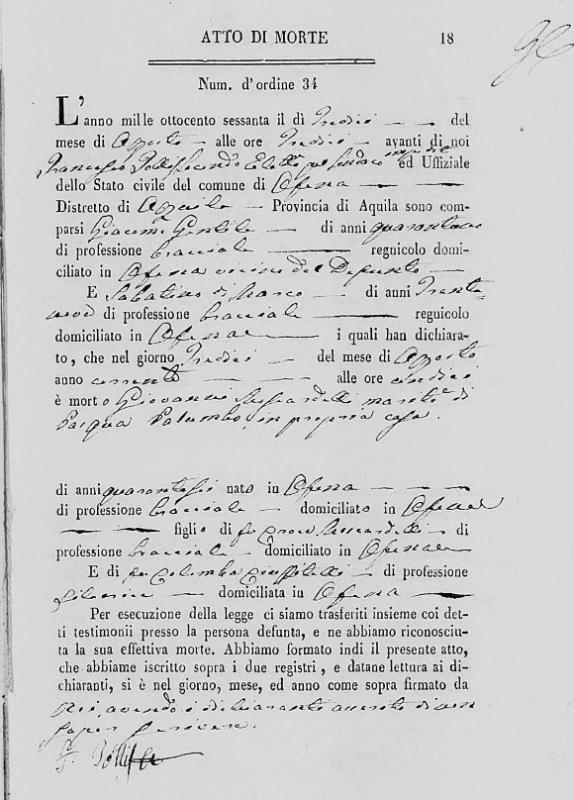 ATTO DI MORTE 18
Num. d'ordine 34
L'anno mille ottocento sessanta il dì Tredici del
mese di Agosto alle ore Tredici avanti di noi
Francesco ed Uffiziale
dello Stato civile del comune di Ofena
Distretto di Aquila Provincia di Aquila sono com-
parsi Giacomo Gentile di anni quarantuno
di professione bracciale regnicolo domi-
ciliato in Ofena vicino del Defunto
E Sabatino di Marco di anni Trenta-
nove di professione bracciale regnicolo
domiciliato in Ofena i quali han dichiara-
to, che nel giorno Tredici del mese di Agosto
anno corrente alle ore undici
è morto Giovanni marito di
Pasqua Palumbo, in propria casa.
di anni quarantasei nato in Ofena
di professione bracciale domiciliato in Ofena
figlio di fu di
professione bracciale domiciliato in Ofena
E di fu Colomba di professione
filatrice domiciliata in Ofena
Per esecuzione della legge ci siamo trasferiti insieme coi det-
ti testimonii presso la persona defunta, e ne abbiamo riconosciu-
ta la sua effettiva morte. Abbiamo formato indi il presente atto,
che abbiame iscritto sopra i due registri, e datane lettura ai di-
chiaranti, si è nel giorno, mese, ed anno come sopra firmato da
Noi, avendo i dichiaranti asserito di non
saper scrivere.